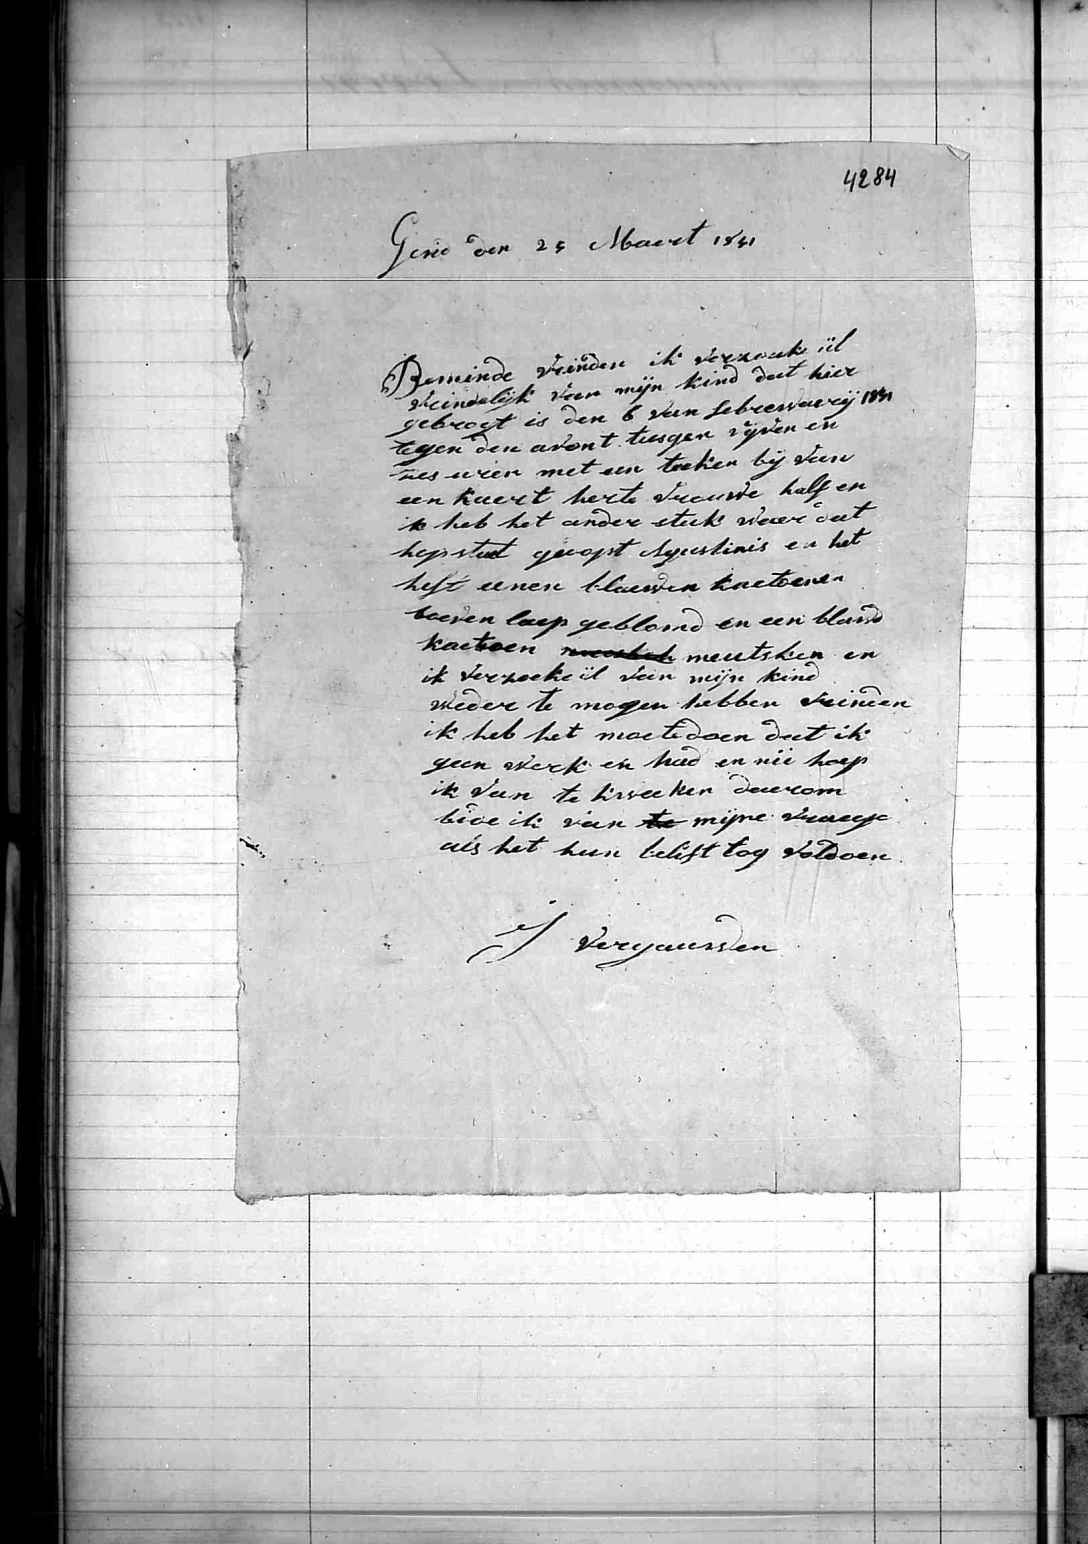 4284
Gend den 25 Maert 1831
Beminde vrinden ik verzoeke ül
vrindelijk van mijn kind dat hier
gebrogt is den 6 van febrewarij 1831
tegen den avont tusgen vijven en
zes uren met een teeken bij van
een kaert herte vrouwe half en
ik heb het ander stuk waer dat
hopstaet Agustinis en het
heft eenen blauwen kaetoenen
boeven laep geblomd en een blawd
kaetoen meutsken en
ik verzoeke ül van mijn kind
weder te mogen hebben vrinden
ik heb het moete doen dat ik
geen werk en had en nie hoep
ik van te kweeken daerom
bide ik van te mijne vraege
als het hun belift tog voldoen
Vergauwen